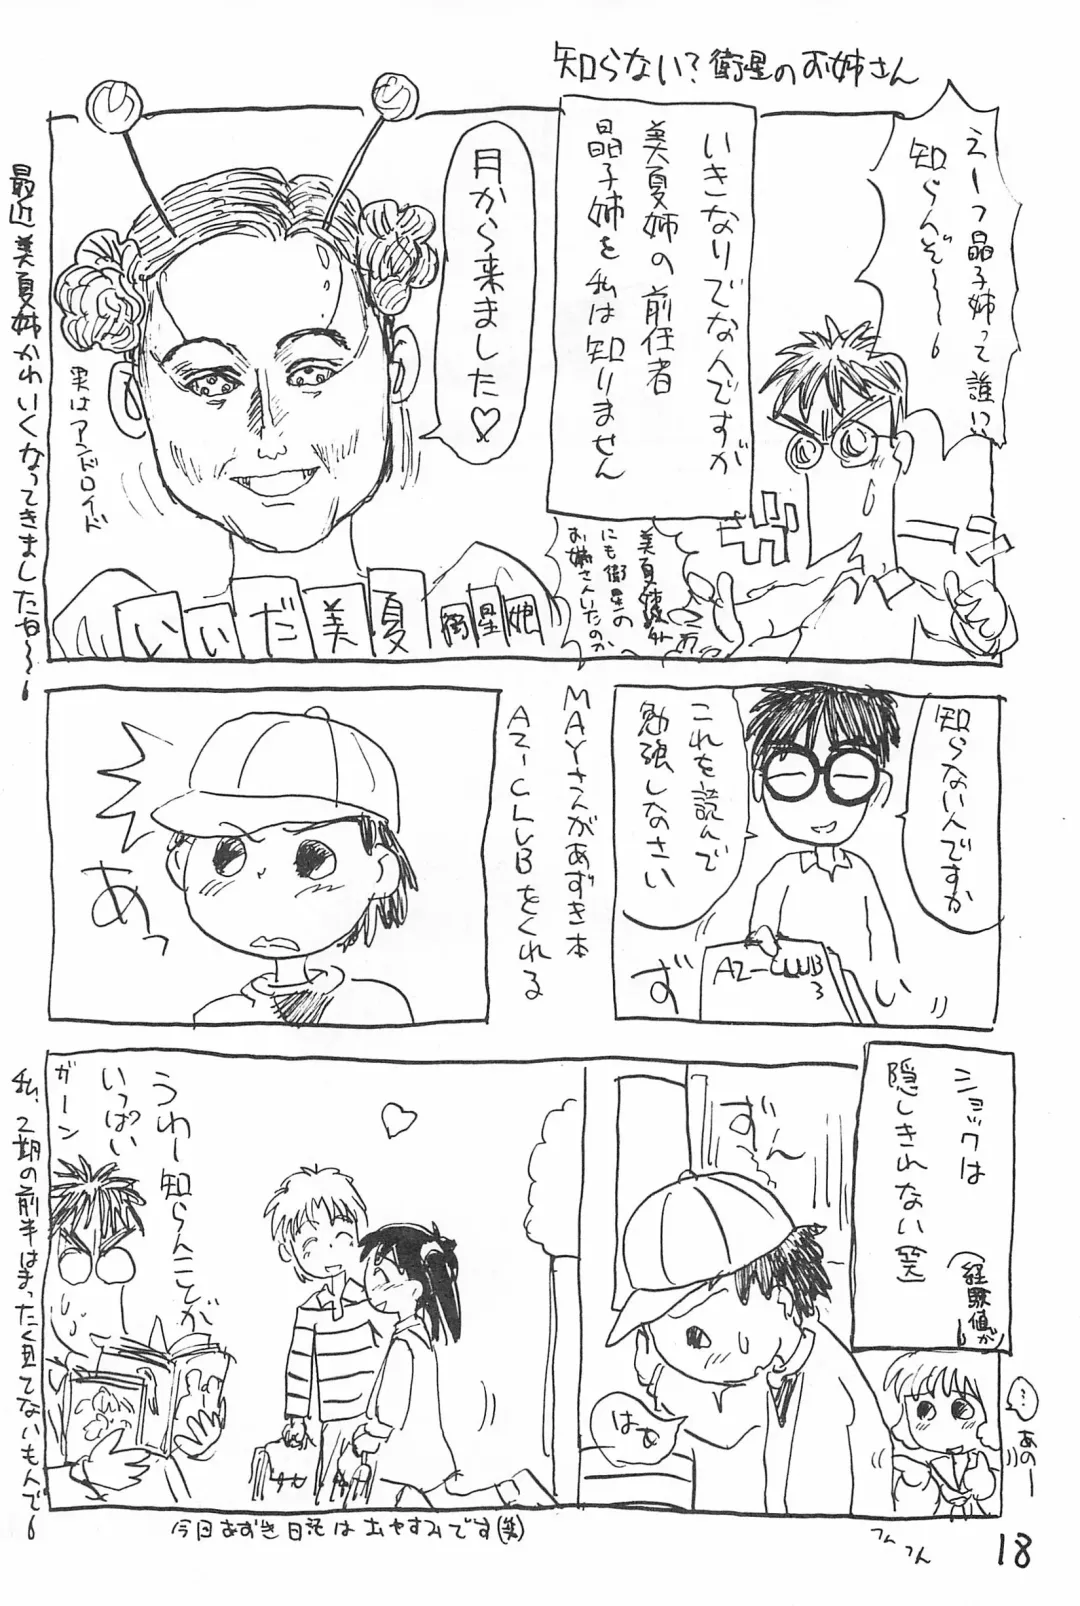 知らない?衛星のお姉さん
えーっ晶子姉って誰い
知らんぞ〜〜
いきなりでなんですが
美夏姉の前任者
晶子姉を私は知りません
ガーン
美夏姉以外
にも衛星の
お姉さんいたのか
月から来ました♡
実はアンドロイド
いいだ美夏
衛星娘
最近美夏姉かわいくなってきましたね〜
知らないんですか
これを読んで
勉強しなさい
AZ-CLUB
3
ずい
MAYさんがあずき本
AZ-CLUBをくれる
あっ
ショックは
隠しきれない(笑)
経験値が
ずーん
はぁ
…
あのー
うわー知らんことが
いっぱい
ガーン
私、2期の前半はまったく見てないもんで
今日あずき日記はおやすみです(笑)
うん
うん
18